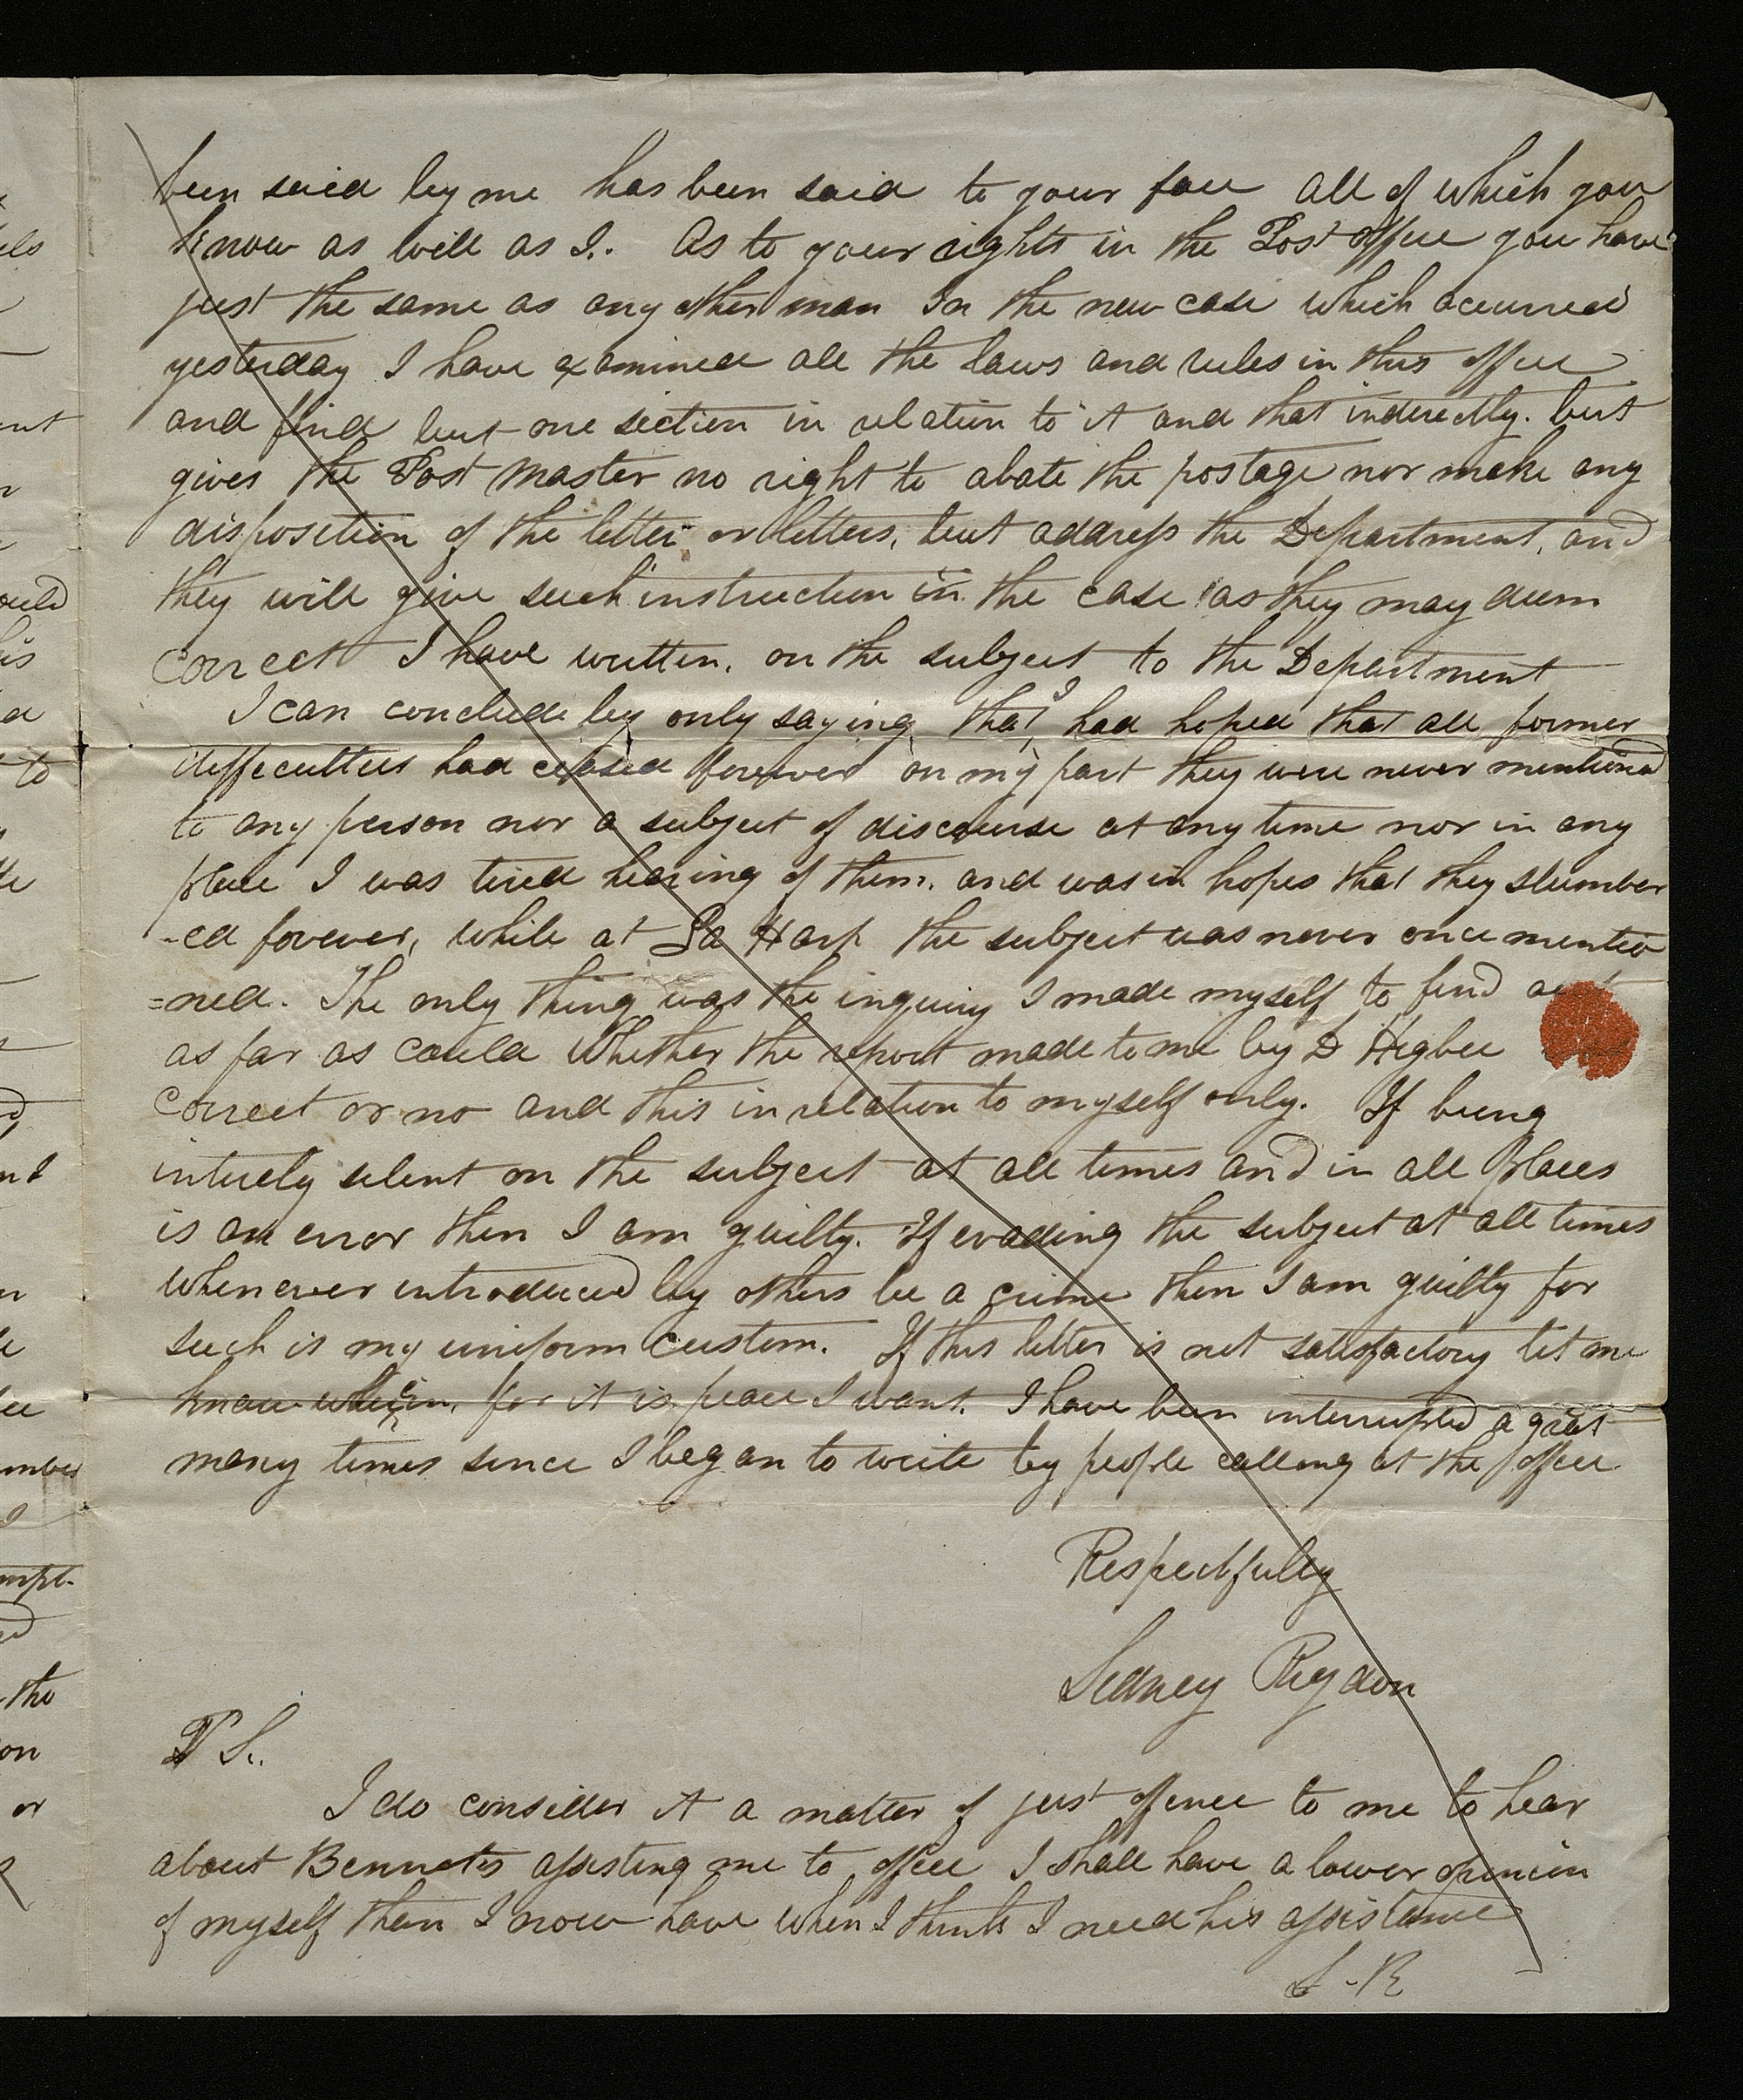 been said by me has been said to your face all of which you
know as well as I. As to your rights in the Post office you have
just the same as any other man In the new case which occurred
yesterday I have examined all the laws and rules in this office
and find but one section in relation to it and that inderectly. but
gives the Post Master no right to abate the postage nor make any
disposition of the letter or letters, but address the Department, and
they will give such instruction in the case as they may deem
correct I have written, on the subject to the Department
I can conclude by only saying that I had hoped that all former
diffeculties had ceased forever on my part they were never mentioned
to any person nor a subject of discourse at any time nor in any
place I was tired hearing of them, and was in hopes that they slumber
-ed forever, while at La Harp the subject was never once mentio
=ned. The only thing was the inquiry I made myself to find out
as far as could whether the report made to me by D Higbee
correct or no and this in relation to myself only. If being
intirely silent on the subject at all times and in all places
is an error then I am guilty. If evading the subject at all times
whenever introduced by others be a crime then I am guilty for
such is my uniform custom. If this letter is not satisfactory let me
know wherein, for it is peace I want. I have been interrupted a great
many times since I began to write by people calling at the office
Respectfully
Sidney Rigdon
P S.
I do consider it a matter of just offence to me to hear
about Bennets assisting me to office I shall have a lower opinion
of myself than I now have when I think I need his assistance
S. R